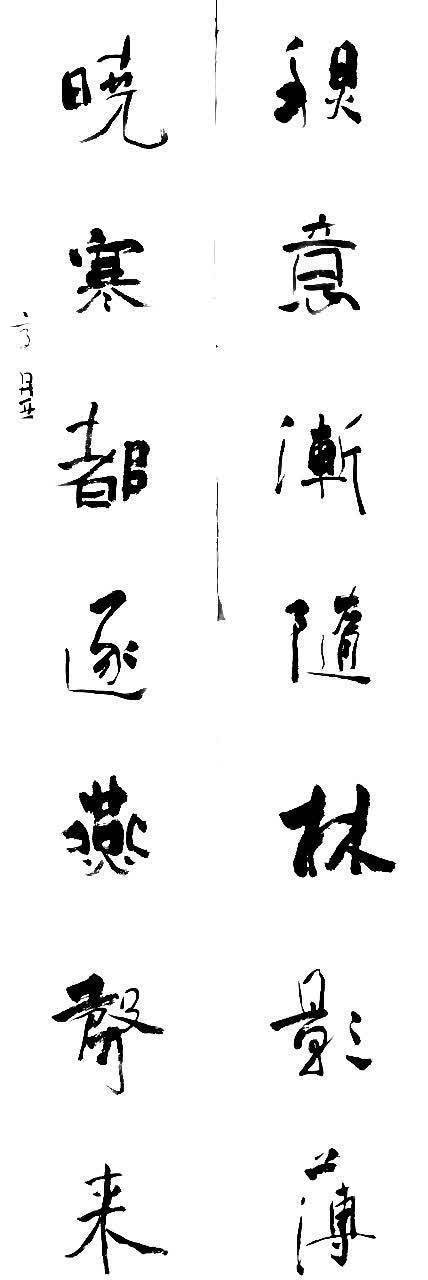 秋意漸隨林影薄
曉寒都逐燕聲来